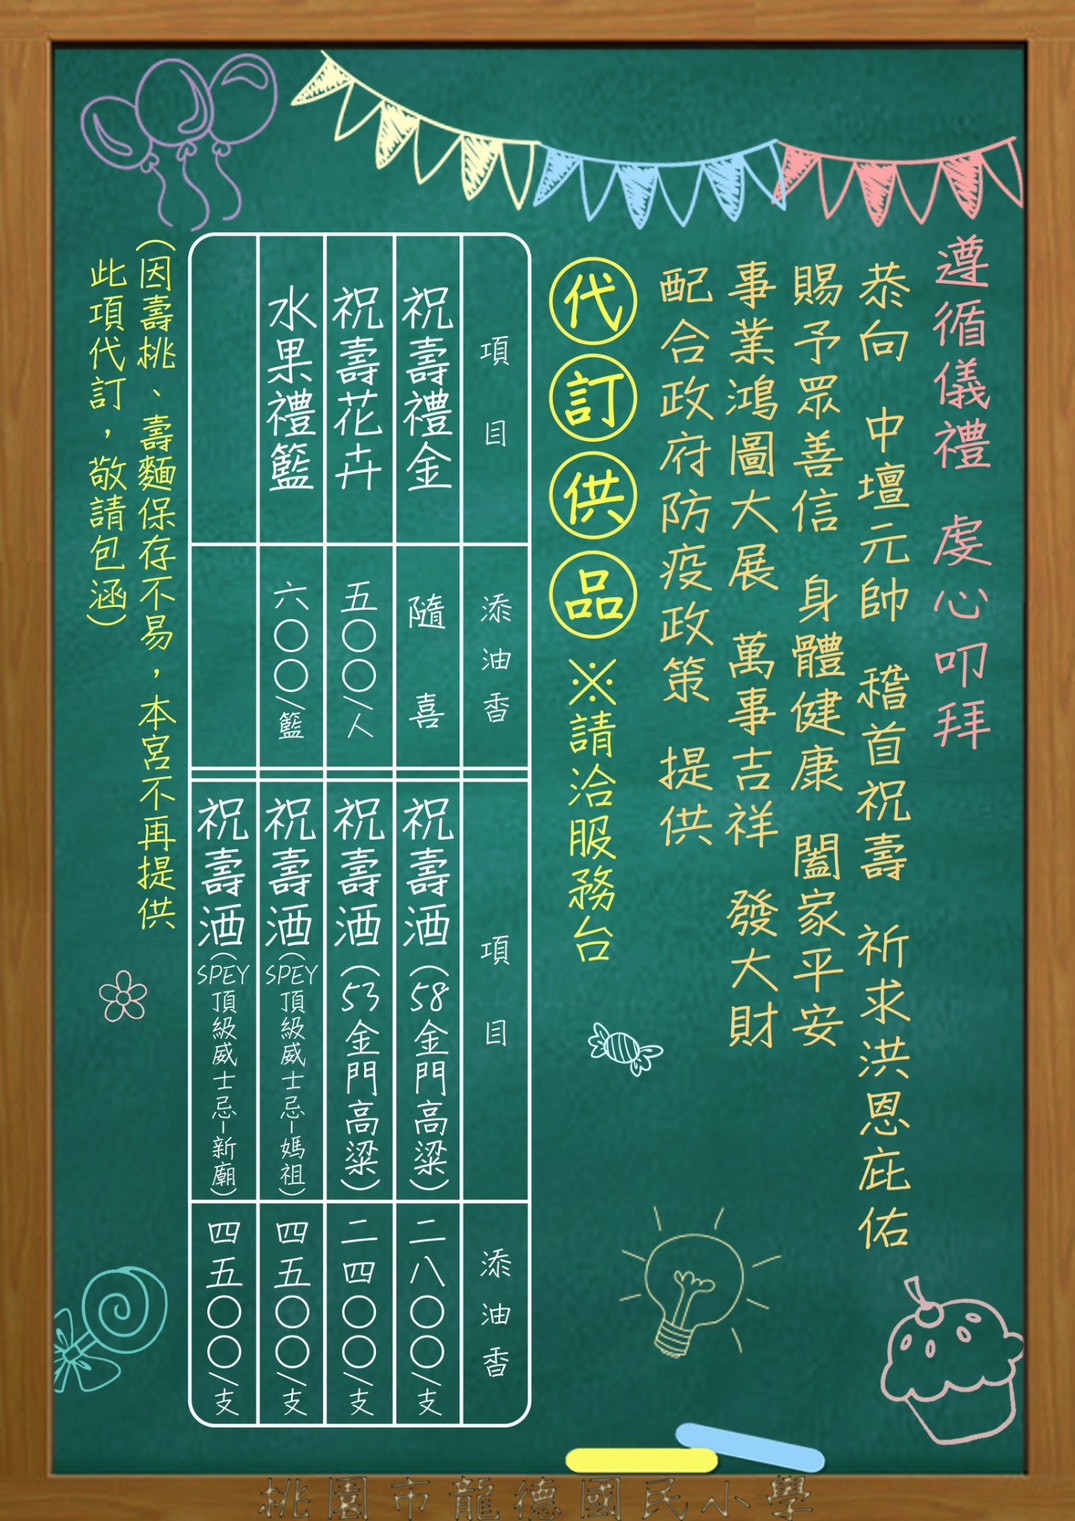 遵循儀禮　虔心叩拜
恭向　中壇元帥　稽首祝壽　祈求洪恩庇佑
賜予眾善信　身體健康　闔家平安
事業鴻圖大展　萬事吉祥　發大財
配合政府防疫政策　提供
代訂供品※請洽服務台
項目　添油香　項目　添油香
祝壽禮金　隨喜　祝壽酒（58金門高粱）　二八〇〇/支
祝壽花卉　五〇〇/人　祝壽酒（53金門高粱）　二四〇〇/支
水果禮籃　六〇〇/籃　祝壽酒（SPEY頂級威士忌-媽祖）　四五〇〇/支
祝壽酒（SPEY頂級威士忌-新廟）　四五〇〇/支
（因壽桃、壽麵保存不易，本宮不再提供
此項代訂，敬請包涵）
桃園市龍德國民小學